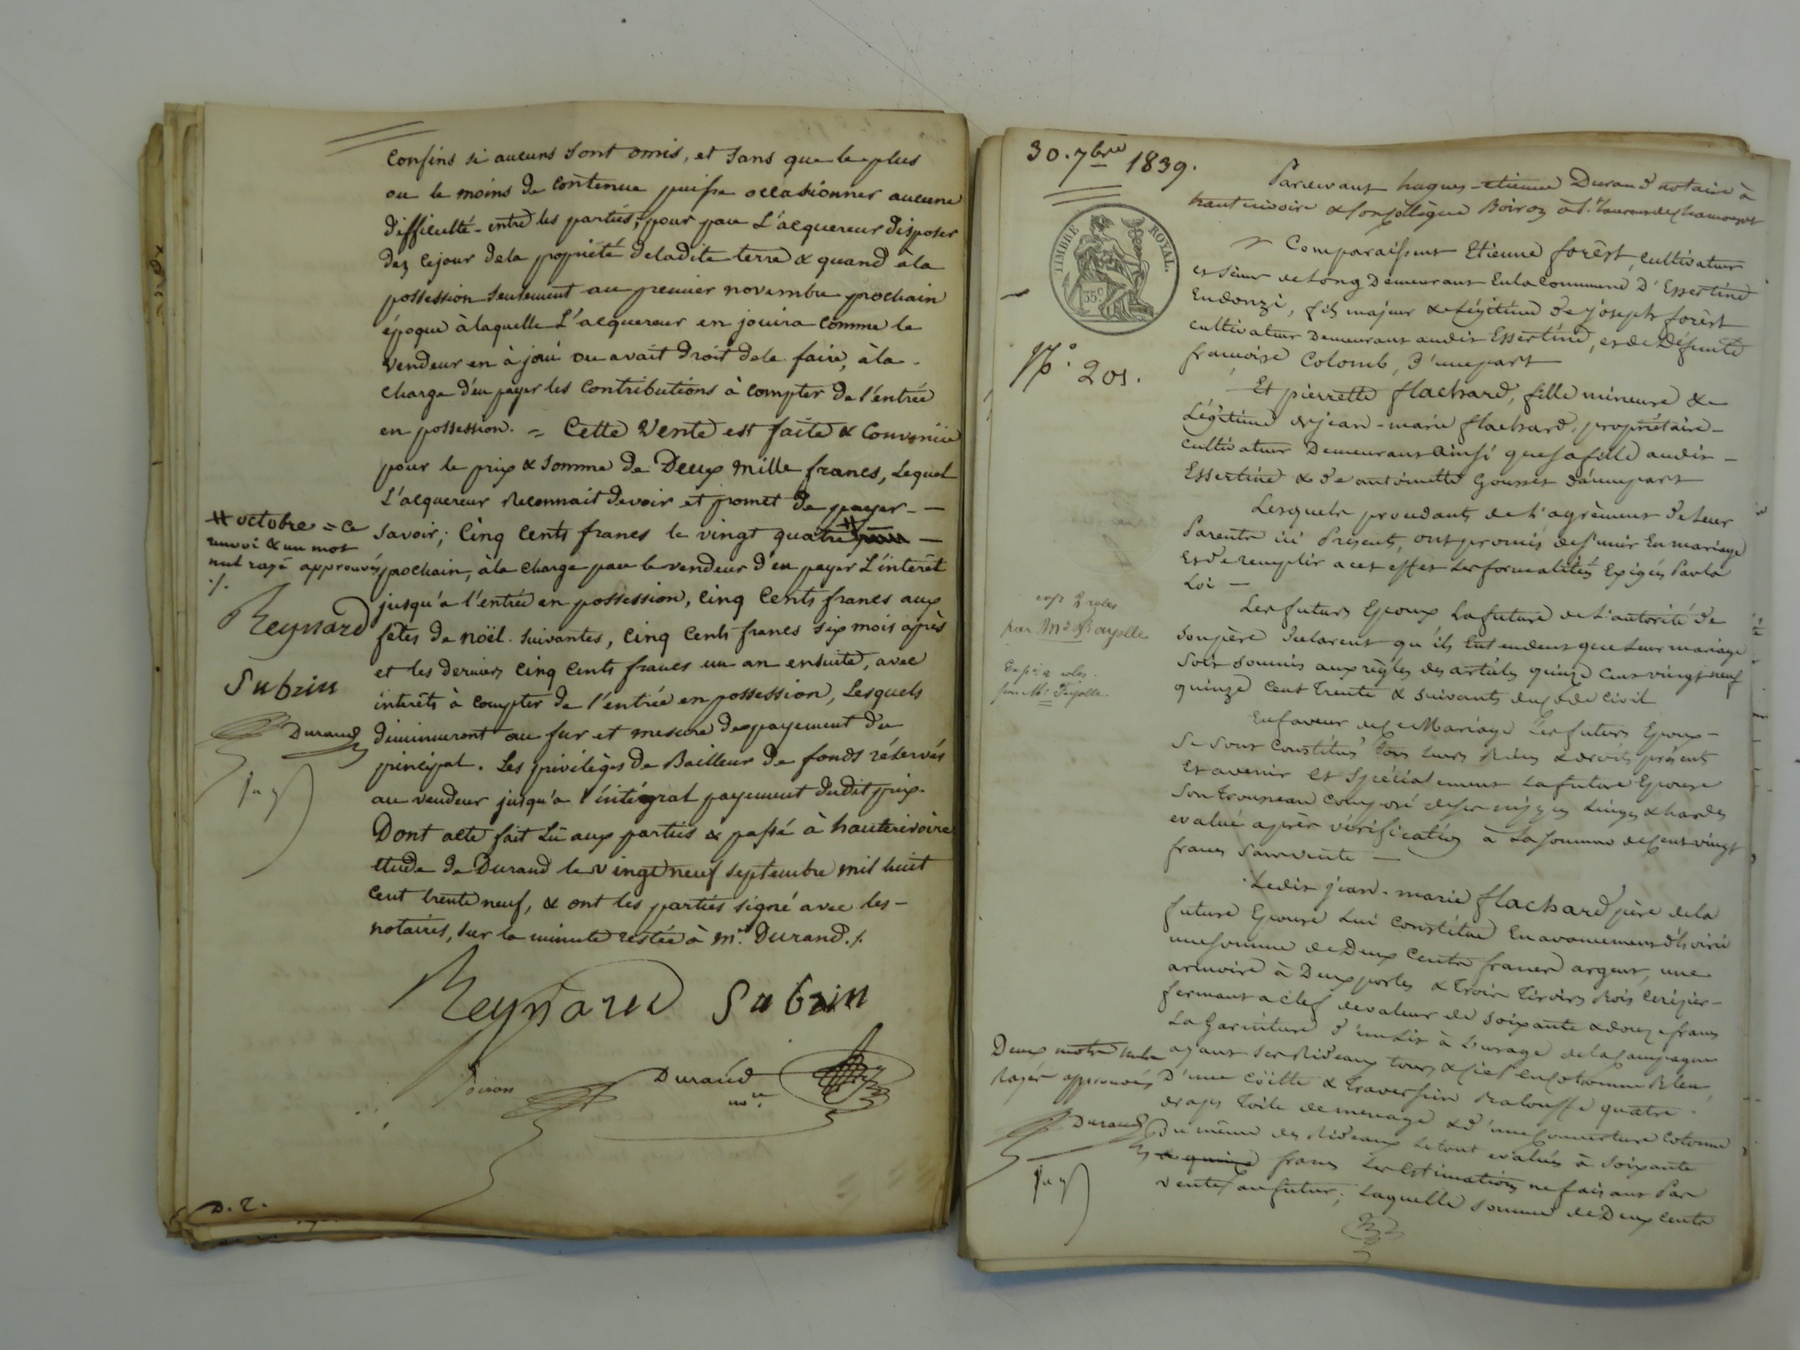 confins si aucuns sont omis, et sans que le plus
ou le moins de contenue puisse occasionner aucune
difficulté entre les parties, pour par l'acquereur disposer
dez cejour dela propriété deladite terre & quand àla
possession seulement au premier novembre prochain
époque à laquelle L'acquereur en jouira comme le
vendeur en à joui ou avait droit dele faire, àla
charge d'en payer les contributions à compter de l'entrée
en possession. = Cette vente est faite & convenüe
pour le prix & somme de Deux mille francs, Lequel
L'acquereur reconnait devoir et promet de payer
savoir; Cinq cents francs le vingt quatre
prochain, àla charge par le vendeur d'en payer L'intérêt
jusqu'a l'entrée en possession, cinq cents francs aux
fêtes de noël suivantes, cinq cents francs six mois après
et les derniers cinq cents francs un an ensuite, avec
intérêts à compter de l'entrée en possession, Lesquels
diminueront au fur et mesure depayement du
principal. Les privilèges de Bailleur de fonds réservés
au vendeur jusqu'a l'intégral payement dudit prix.
Dont acte fait Lü aux parties & passé à hauterivoire
etude de Durand le vingt neuf septembre mil huit
cent trente neuf, & ont les parties signé avec les
notaires, sur la minute restée à me. Durand ./.
# octobre = ce
renvoi & un mot
nul rayé approuvés
./.
Reynard
Subrin
Durand
Reynard Subrin
Durand
nre.
D. 2.
30. 7bre 1839.
TIMBRE ROYAL.
35c
No. 201.
Pardevant hugues-etienne Durand notaire à
hauterivoire & son collègue Boiron à St. Laurent de chamousset
Comparaissent Etienne forêst, cultivateur
et sieur de Long Demeurant En la Commune d'Essertine
Endonzi, fils majeur & Légitime de joseph forêst
cultivateur Demeurant audit Essertine, et de Défunte
françoise Colomb, d'une part
Et pierrette flachard, fille mineure &
Légitime de jean-marie flachard, propriétaire
cultivateur Demeurant ainsi que sa fille audit
Essertine & de antoinette Gousset d'aune part
Lesquels procedants de L'agrèment de Leur
Parents ici Présents, ont promis de s'unir En mariage
Et de remplir a cet effet Les formalités Exigés Par la
Loi
Les futurs Epoux La future de L'autorité de
son père declarent qu'ils Entendent que Leur mariage
soit soumis aux règles des articles quinze cent vingt neuf
quinze cent trente & suivants du code civil
En faveur de ce Mariage Les futurs Epoux
se sont constitués tous Leurs Biens & droits présents
Et avenir Et spécialement La future Epouse
son trousseau composé de ses nippes Linges & hardes
evalué après vérification à La somme de cent vingt
francs sans vente
Ledit jean-marie flachard père de la
future Epouse Lui constitue En avancement d'hoirie
une somme de Deux Cents francs argent, une
armoire à Deux portes & trois tiroirs Bois cerisier
fermant a clef de valeur de soixante & douze francs
La Garniture d'un Lit à L'usage de la campagne
ayant ses Rideaux tours & ciel En cotonne Bleu,
D'une coitte & traversin Balouffe quatre
draps toile de menage & d'une couverture cotonne
Du même des Rideaux Le tout evalués à soixante
& quinze francs Les Estimations ne faisant Par
vente au futur; Laquelle somme de Deux cents
Deux mots nuls
Rayés approuvés
Durand